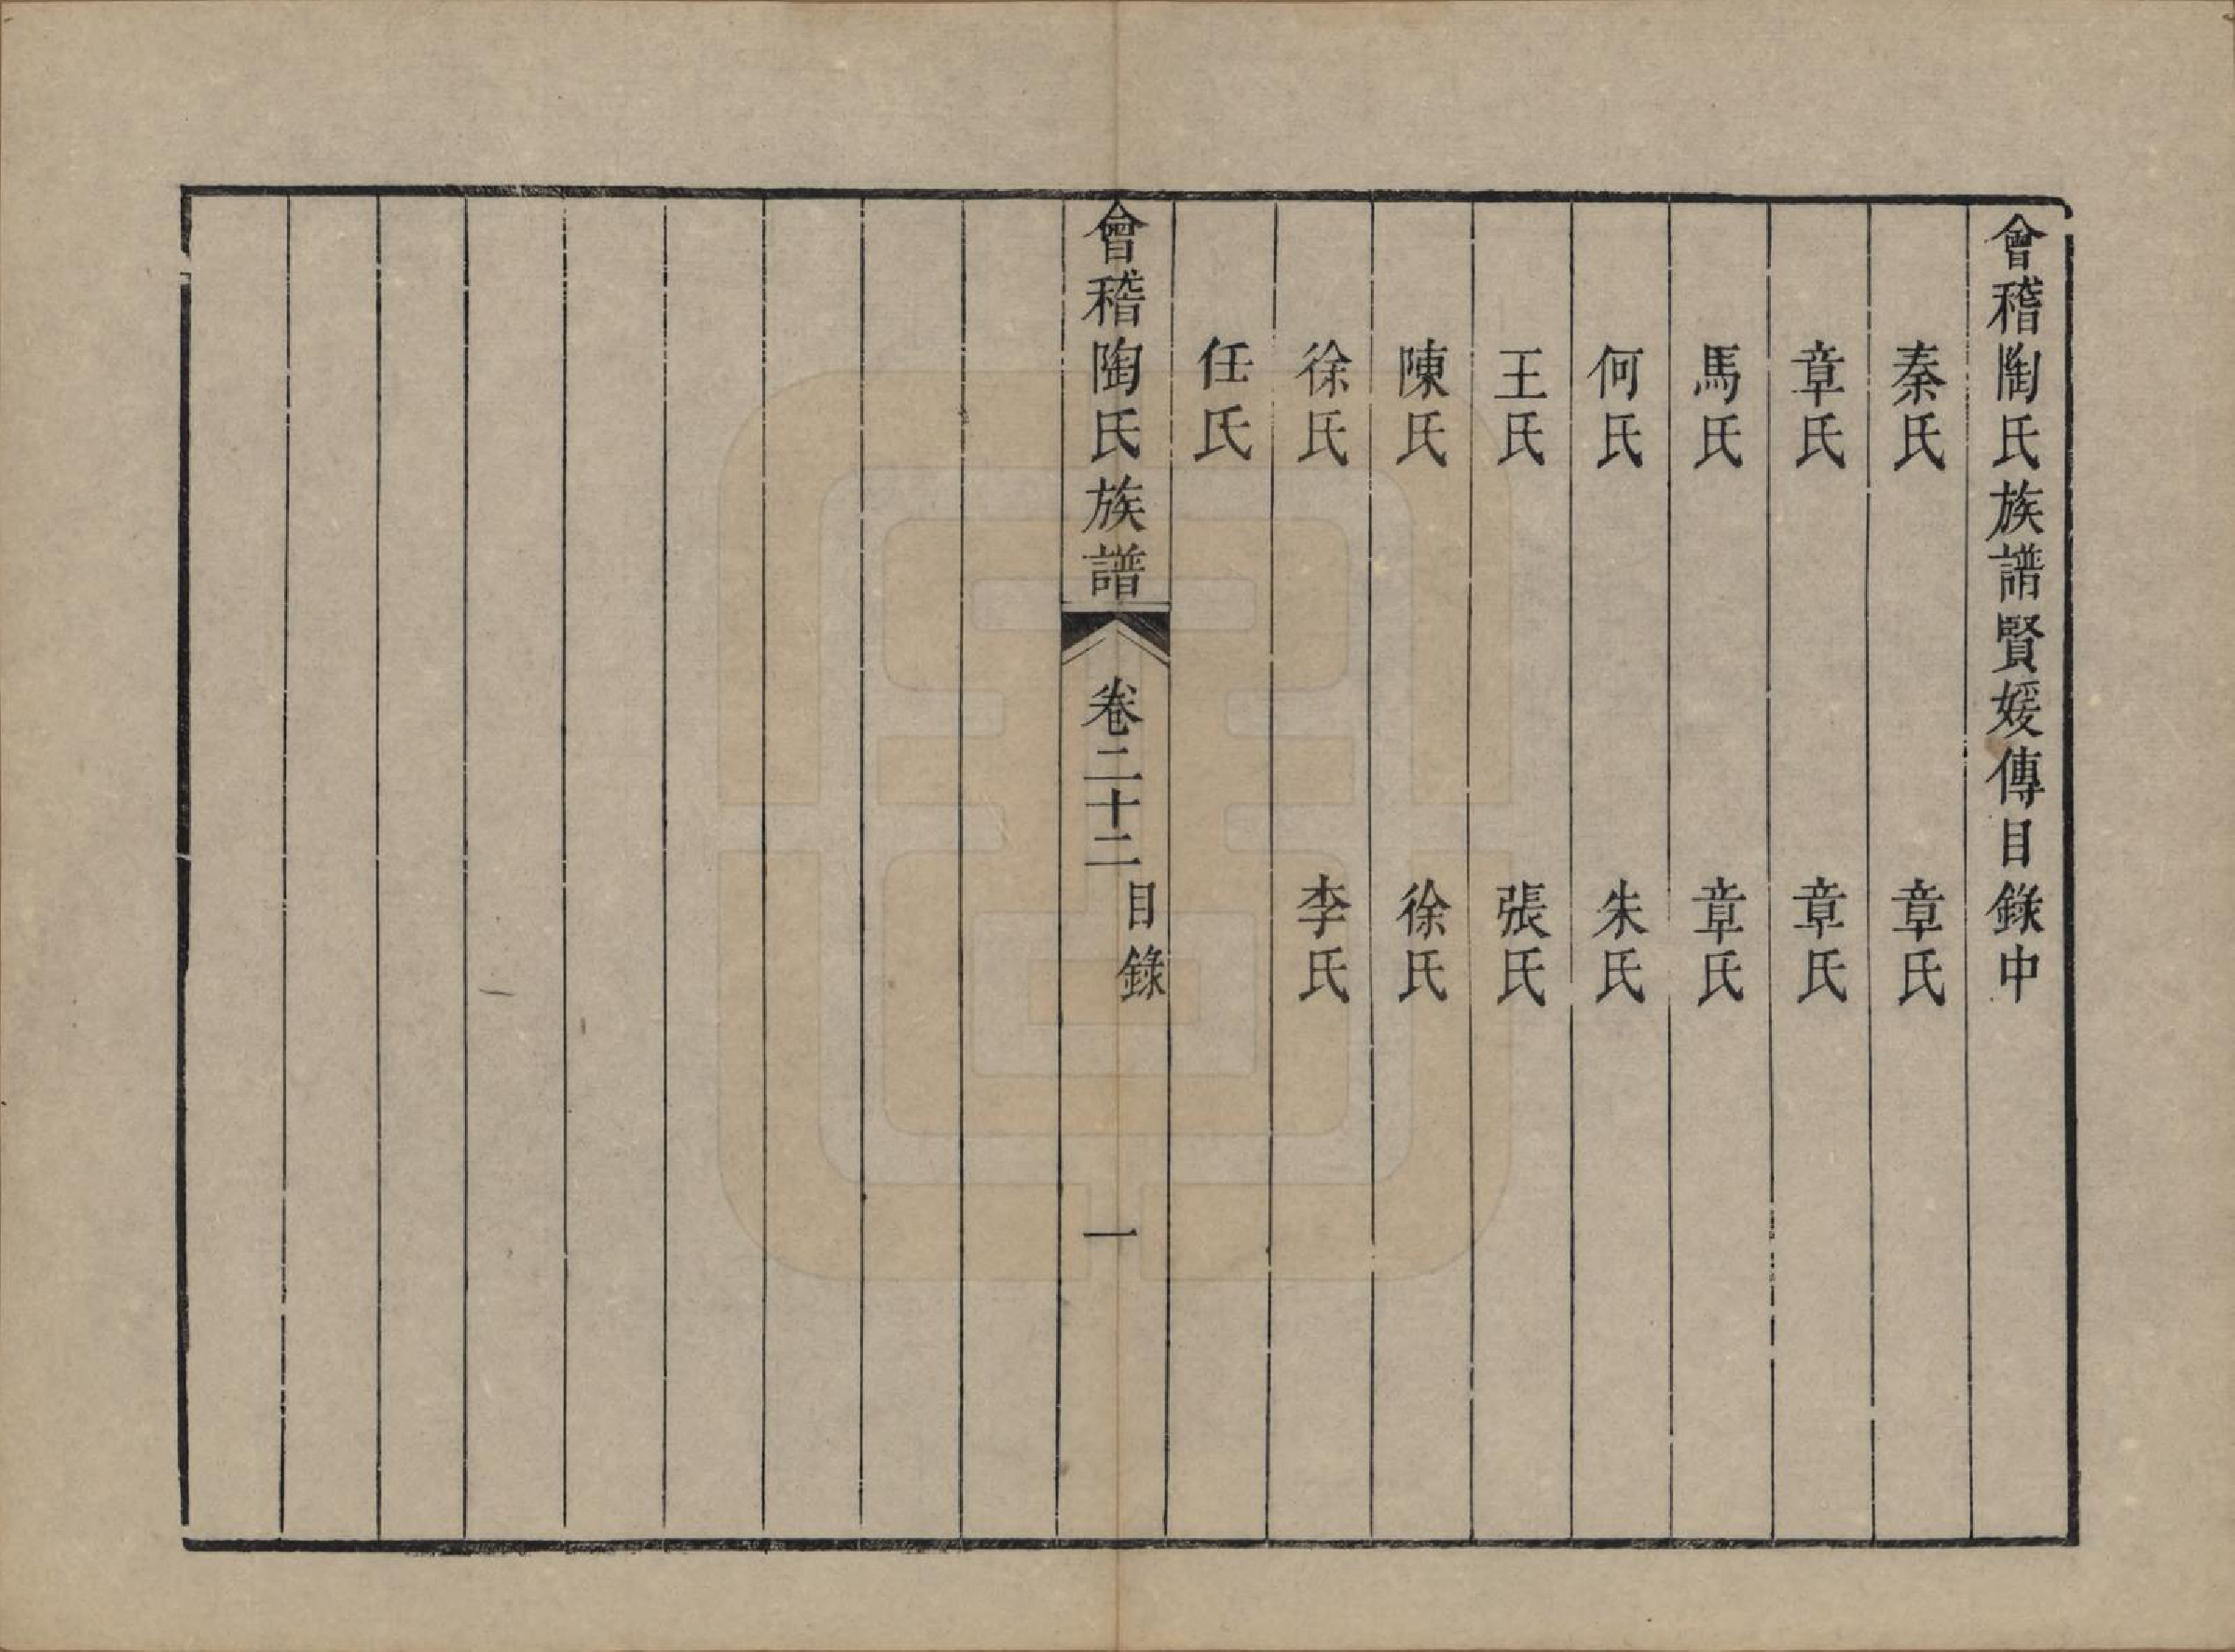 會稽陶氏族譜賢媛傳目錄中
秦氏　章氏
章氏　章氏
馬氏　章氏
何氏　朱氏
王氏　張氏
陳氏　徐氏
徐氏　李氏
任氏
會稽陶氏族譜　卷二十二　目錄　一